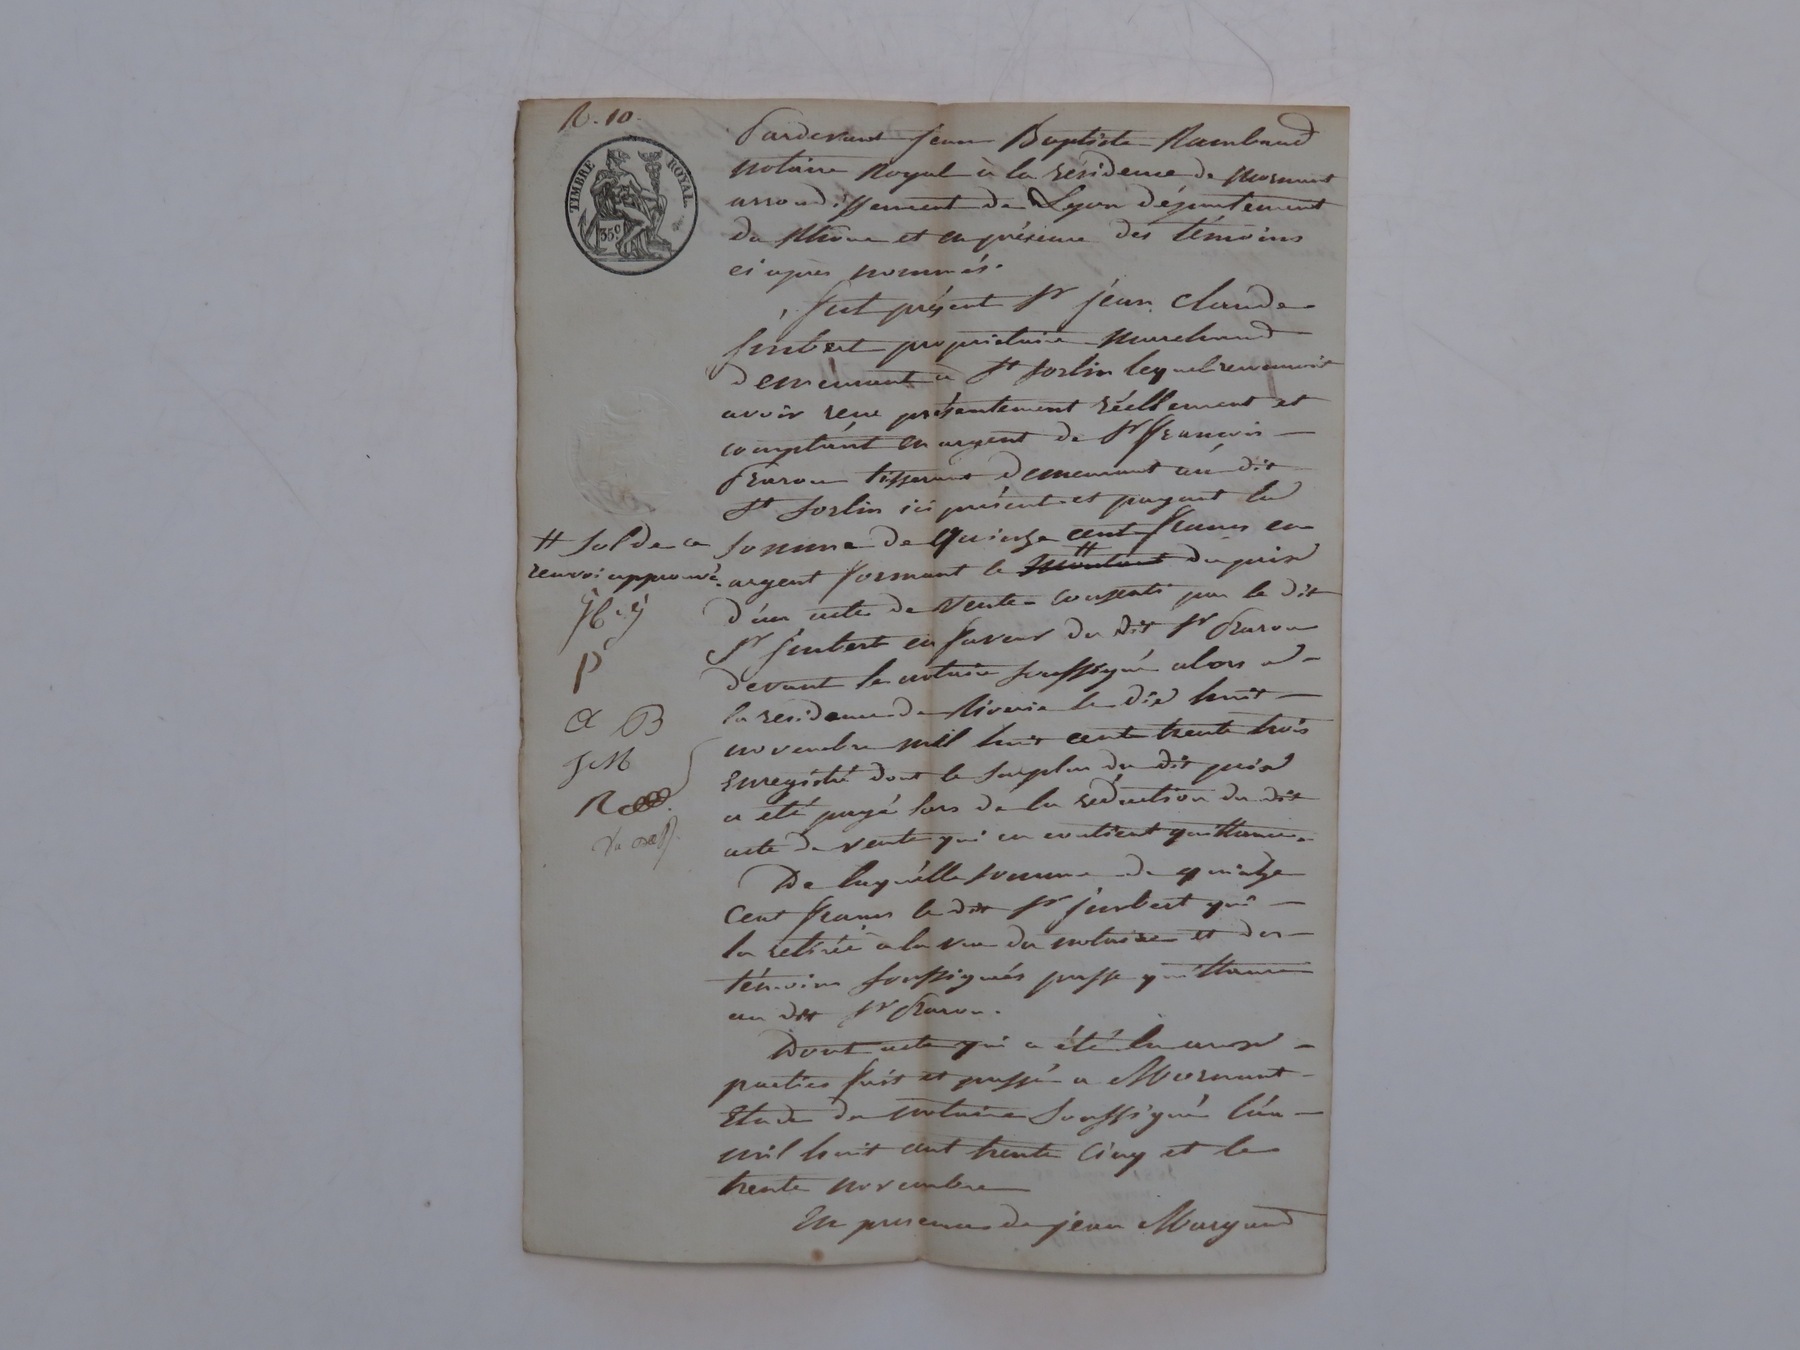 R. 10.
TIMBRE ROYAL
35 c
Pardevant jean Baptiste Rambaud
notaire Royal à la résidence de mornant
arrondissement de Lyon département
du Rhône et en présence des témoins
ci après nommés.
fut présent Sr jean Claude
jmbert propriétaire marchand
demeurant à St Sorlin lequel reconnoit
avoir reçu présentement réellement et
comptant en argent de Sr françois
tisserant demeurant au dit
St Sorlin ici présent et payant la
# solde ce
renvoi approuvé
somme de quinze cent francs en
argent formant le montant # du prix
d'un acte de vente consenti par le dit
Sr jmbert en faveur du dit Sr
devant le notaire soussigné alors a
la residence de Riverie le dix huit
novembre mil huit cent trente trois
Enregistré dont le surplus du dit prix
a été payé lors de la rédaction du dit
acte de vente qui en contient quittance.
De laquelle somme de quinze
Cent francs le dit Sr jmbert qui
la retirée à la vue du notaire et des
témoins soussignés passe quittance
au dit Sr
Dont acte qui a été lu aux
parties fait et passé a Mornant
Etude du notaire soussigné l'an
mil huit cent trente cinq et le
trente novembre
En presence de jean Margand
P
C B
JM